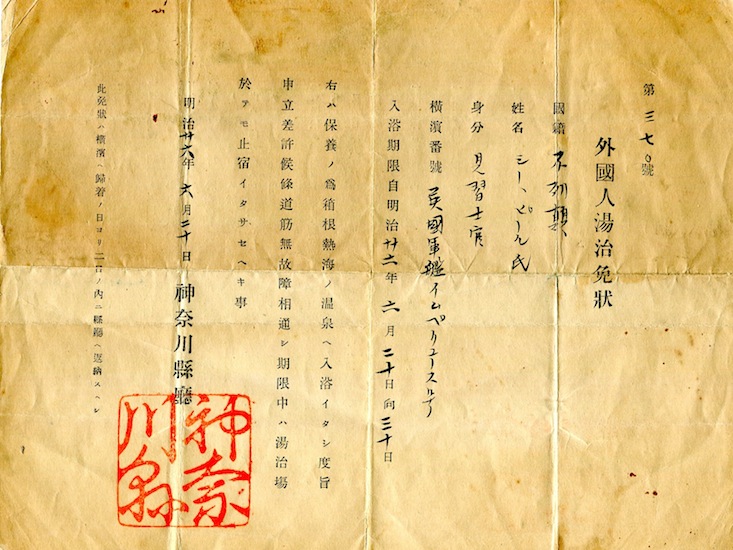 第三七〇號
外國人湯治免狀
國籍 不列顚
姓名 シー、ピール氏
身分 見習士官
橫濱番號 英國軍艦イムペリユース
入浴期限自明治廿六年六月二十日向三十日
右ハ保養ノ爲箱根熱海ノ温泉ヘ入浴イタシ度旨
申立差許候條道筋無故障相通シ期限中ハ湯治場
於テモ止宿イタサセヘキ事
明治廿六年六月二十日
神奈川縣廳
神奈川縣
此免狀ハ橫濱ヘ歸着ノ日ヨリ二日ノ内ニ縣廳ヘ返納スヘシ